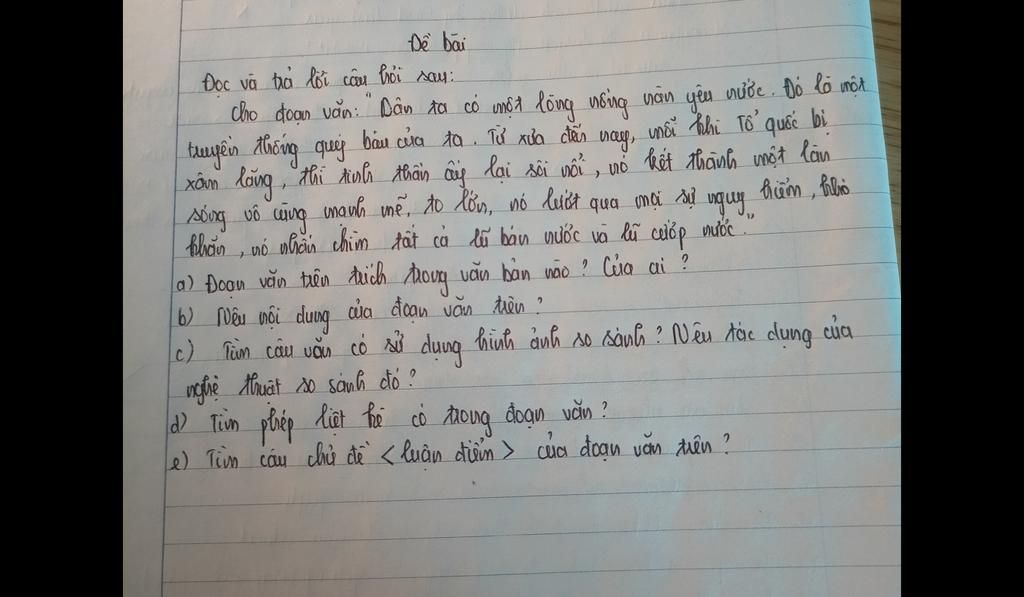 Đề bài
Đọc và trả lời câu hỏi sau:
Cho đoạn văn: "Dân ta có một lòng nồng nàn yêu nước. Đó là một
truyền thống quý báu của ta. Từ xưa đến nay, mỗi khi Tổ quốc bị
xâm lăng, thì tinh thần ấy lại sôi nổi, nó kết thành một làn
sóng vô cùng mạnh mẽ, to lớn, nó lướt qua mọi sự nguy hiểm, khó
khăn, nó nhấn chìm tất cả lũ bán nước và lũ cướp nước."
a) Đoạn văn trên trích trong văn bản nào? Của ai?
b) Nêu nội dung của đoạn văn trên?
c) Tìm câu văn có sử dụng hình ảnh so sánh? Nêu tác dụng của
nghệ thuật so sánh đó?
d) Tìm phép liệt kê có trong đoạn văn?
e) Tìm câu chủ đề <luận điểm> của đoạn văn trên?